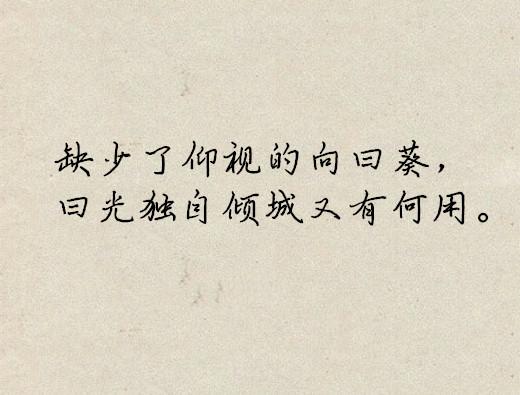 缺少了仰视的向日葵，
日光独自倾城又有何用。